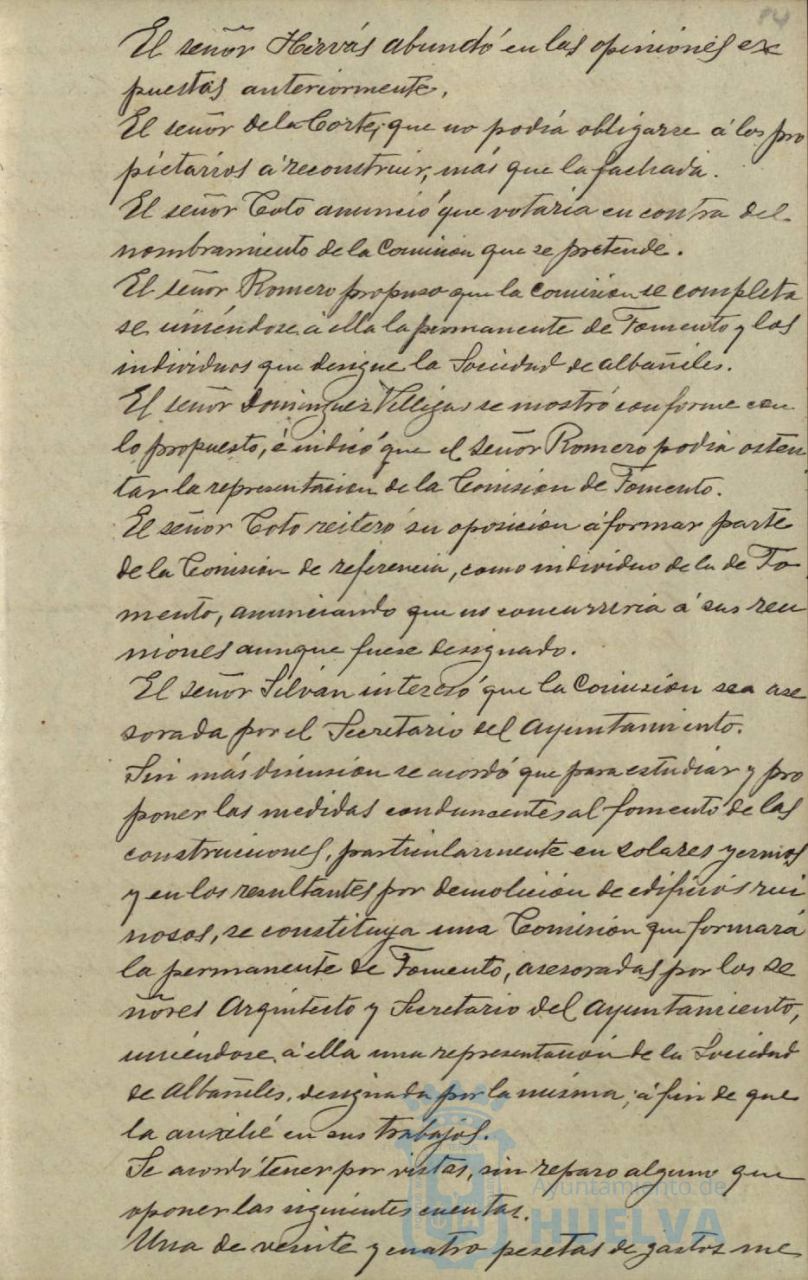 84
El señor Hervás abundó en las opiniones ex
puestas anteriormente.
El señor de la Corte, que no podía obligarse á los pro
pietarios á reconstruir, más que la fachada.
El señor Coto anunció que votaría en contra del
nombramiento de la Comisión que se pretende.
El señor Romero propuso que la Comisión se completa
se uniéndose á ella la permanente de Fomento y los
individuos que designe la Sociedad de albañiles.
El señor Dominguez Villegas se mostró conforme con
lo propuesto, é indicó que el señor Romero podía osten
tar la representación de la Comisión de Fomento.
El señor Coto reiteró su oposición á formar parte
de la Comisión de referencia, como individuo de la de Fo-
mento, anunciando que no concurriría á sus reu
niones aunque fuese designado.
El señor Silván interesó que la Comisión sea ase
sorada por el Secretario del Ayuntamiento.
Sin más discusión se acordó que para estudiar y pro
poner las medidas conducentes al fomento de las
construcciones, particularmente en solares yermos
y en los resultantes por demolición de edificios rui
nosos, se constituya una Comisión que formará
la permanente de Fomento, asesoradas por los se
ñores Arquitecto y Secretario del Ayuntamiento,
uniéndose á ella una representación de la Sociedad
de Albañiles, designada por la misma, á fin de que
la auxilié en sus trabajos.
Se acordó tener por vistas, sin reparo alguno que
oponer las siguientes cuentas.
Una de veinte y cuatro pesetas de gastos me
Ayuntamiento de
HUELVA